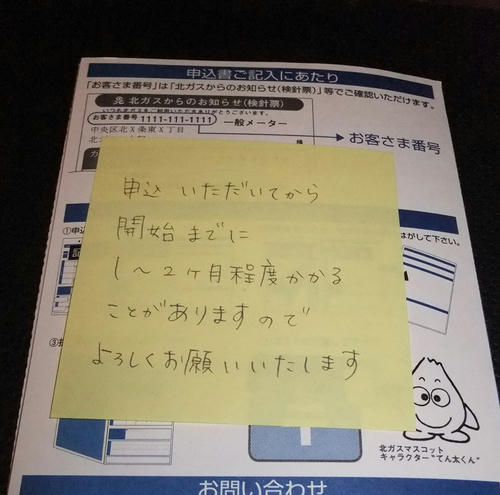 申込書ご記入にあたり
「お客さま番号」は「北ガスからのお知らせ(検針票)」等でご確認いただけます。
北ガスからのお知らせ(検針票)
いつも北ガスをご利用いただきありがとうございます。
お客さま番号 1111-111-1111
一般メーター
中央区北X条東X丁目
お客さま番号
様
申込 いただいてから
開始までに
1〜2ヶ月程度かかる
ことがありますので
よろしくお願いいたします
①
はがして下さい。
③
北ガスマスコット
キャラクター"てん太くん"
お問い合わせ